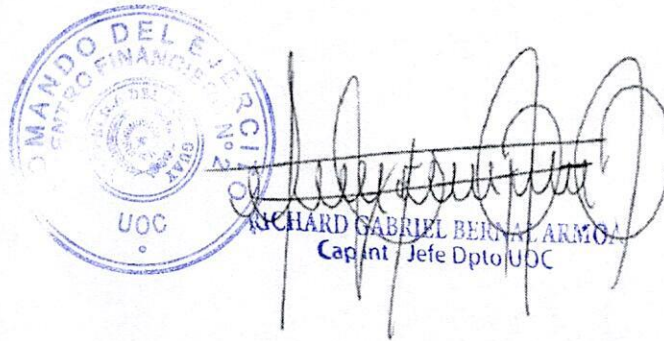 COMANDO DEL EJERCITO
CENTRO FINANCIERO Nº 2
UOC
RICHARD GABRIEL BERNAL ARMOA
Cap Int Jefe Dpto UOC